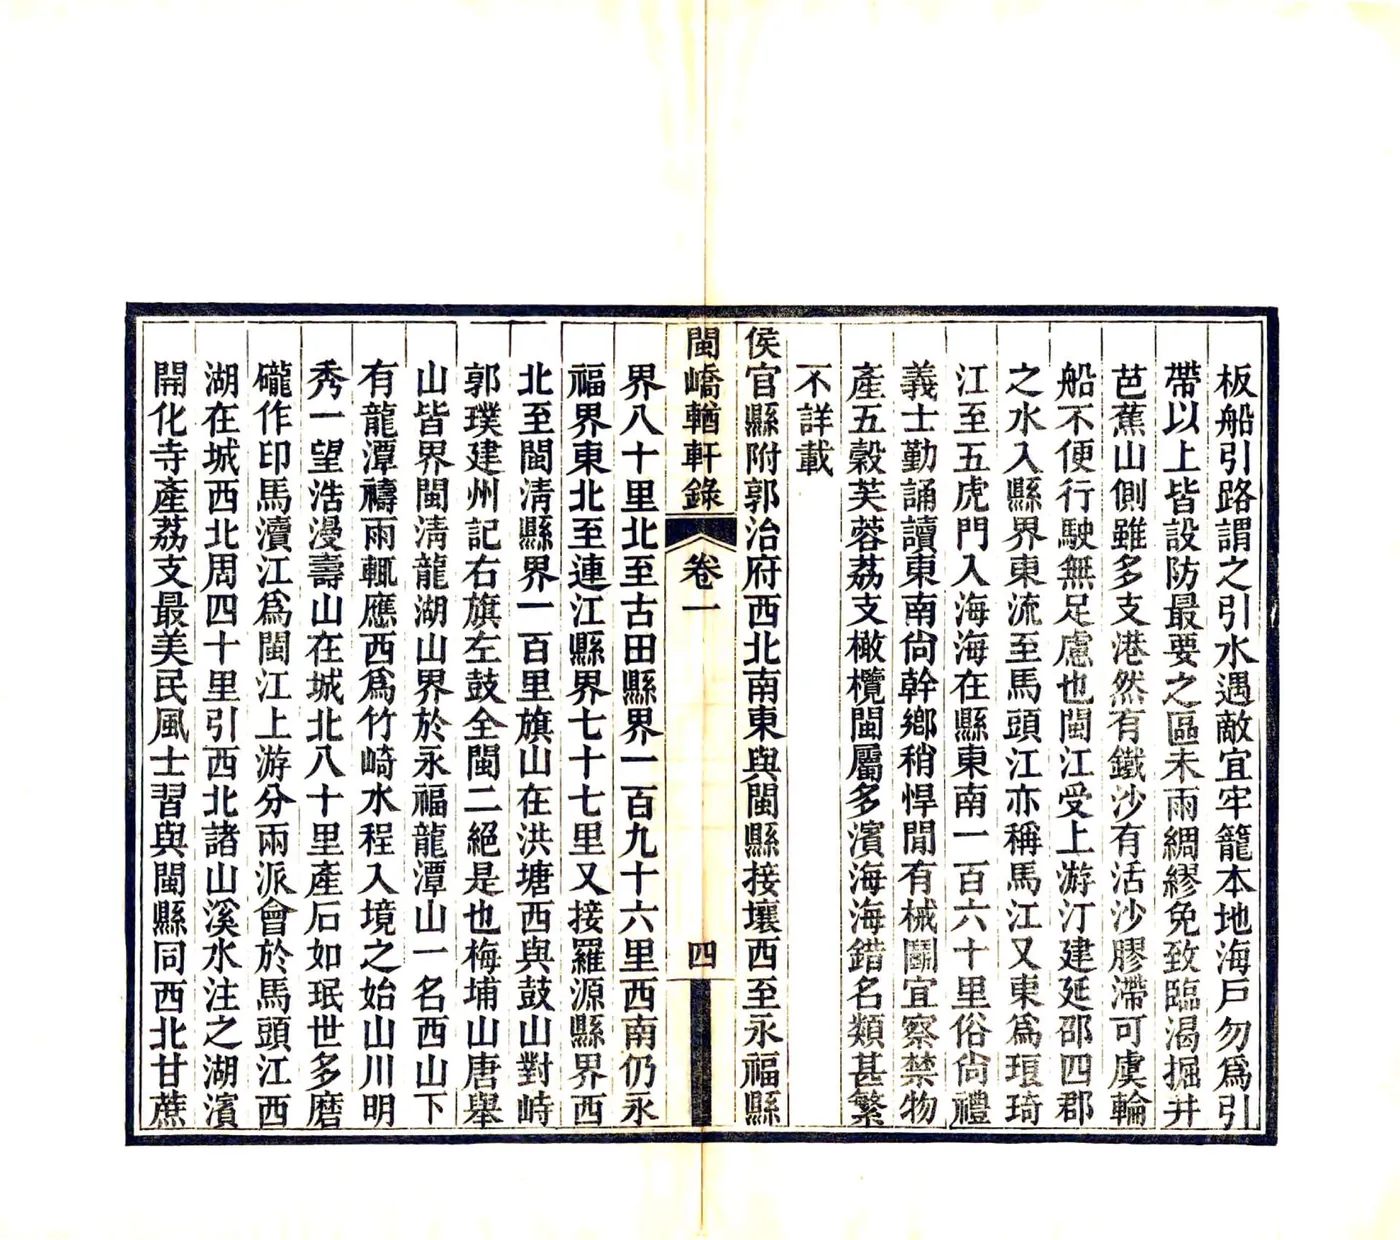 板船引路謂之引水遇敵宜牢籠本地海戶勿爲引
帶以上皆設防最要之區未雨綢繆免致臨渴掘井
芭蕉山側雖多支港然有鐵沙有活沙膠滯可虞輪
船不便行駛無足慮也閩江受上游汀建延邵四郡
之水入縣界東流至馬頭江亦稱馬江又東爲瑣琦
江至五虎門入海海在縣東南一百六十里俗尙禮
義士勤誦讀東南尙幹鄉稍悍閒有械鬭宜察禁物
產五穀芙蓉荔支橄欖閩屬多濱海海錯名類甚繁
不詳載
侯官縣附郭治府西北南東與閩縣接壤西至永福縣
閩嶠輶軒錄
卷一
四
界八十里北至古田縣界一百九十六里西南仍永
福界東北至連江縣界七十七里又接羅源縣界西
北至閩淸縣界一百里旗山在洪塘西與鼓山對峙
郭璞建州記右旗左鼓全閩二絕是也梅埔山唐舉
山皆界閩淸龍湖山界於永福龍潭山一名西山下
有龍潭禱雨輒應西爲竹崎水程入境之始山川明
秀一望浩漫壽山在城北八十里產石如珉世多磨
礲作印馬瀆江爲閩江上游分兩派會於馬頭江西
湖在城西北周四十里引西北諸山溪水注之湖濱
開化寺產荔支最美民風士習與閩縣同西北甘蔗